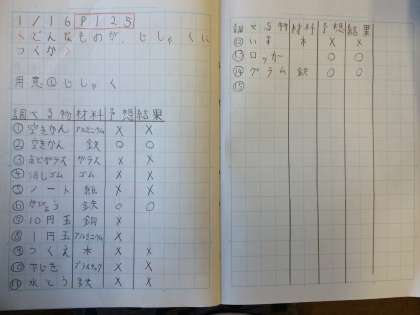 1/16 P125
どんなものが、じしゃくに
つくか
用意 じしゃく
調べる物 材料 予想 結果
① 空きかん アルミニウム × ×
② 空きかん 鉄 ○ ○
③ まどガラス ガラス × ×
④ 消しゴム ゴム × ×
⑤ ノート 紙 × ×
⑥ がびょう 鉄 ○ ○
⑦ 10円玉 銅 × ×
⑧ 1円玉 アルミニウム × ×
⑨ つくえ 木 × ×
⑩ 下じき プラスチック × ×
⑪ 水とう 鉄 × ×
調べる物 材料 予想 結果
⑫ いす 木 × ×
⑬ ロッカー ○ ○
⑭ グラム 鉄 ○ ○
⑮